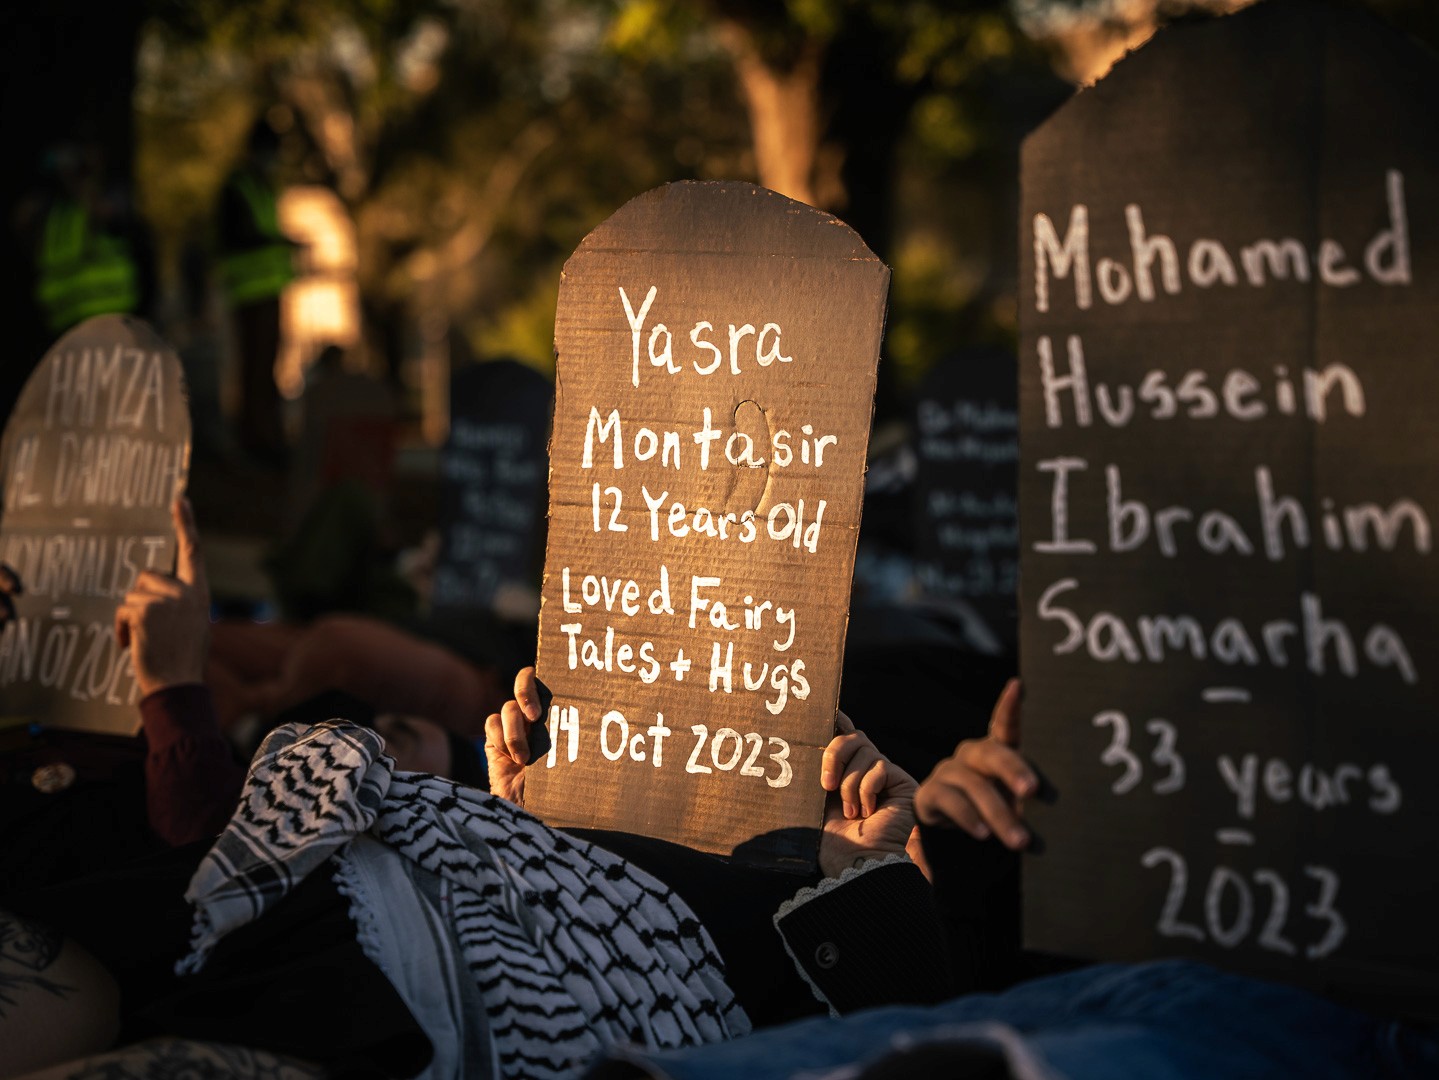 HAMZA
AL DAHDOUH
-
JOURNALIST
-
JAN 07 2024
Yasra
Montasir
12 Years Old
Loved Fairy
Tales + Hugs
14 Oct 2023
Mohamed
Hussein
Ibrahim
Samarha
-
33 years
-
2023